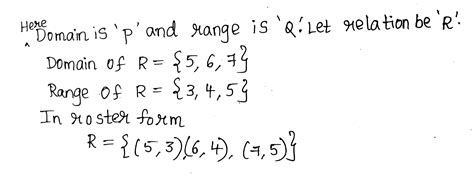 Here Domain is 'p' and range is 'Q'. Let relation be 'R'.
Domain of R = {5, 6, 7}
Range of R = {3, 4, 5}
In roster form
R = {(5, 3)(6, 4), (7, 5)}